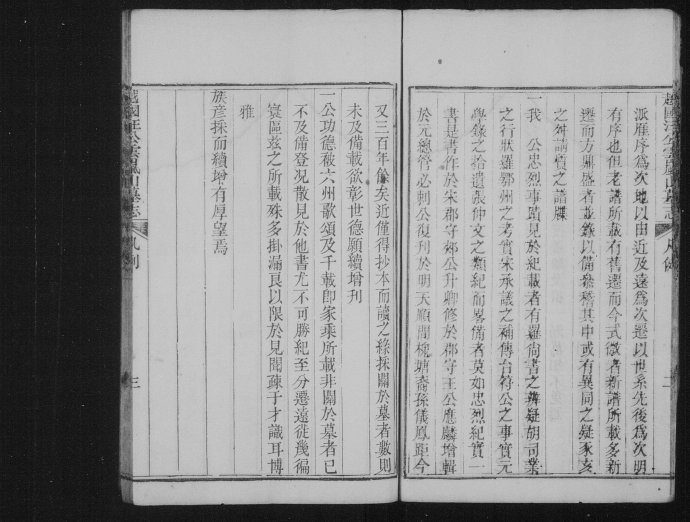 派雁序爲次地以由近及遠爲次遷以世系先後爲次明
有序也但老譜所載有舊遷而今式微者新譜所載多新
遷而方興盛者並錄以備叅稽其中或有異同之疑豕亥
之舛請質之譜牒
一我 公忠烈事蹟見於紀載者有羅尚書之辨疑胡司業
之行狀羅鄂州之考實宋承議之補傳台符公之事實元
學錄之拾遺張仲文之類紀而畧備者莫如忠烈紀實一
書是書作於宋郡守郊公升卿修於郡守王公應麟增輯
於元總管必剌公復刊於明天順間槐塘裔孫儀鳳距今
越國汪公雲嵐山墓志 凡例 二
又三百年餘矣近僅得抄本而讀之綠採關於墓者數則
未及備載欲彰世德願續增刊
一公功德被六州歌頌及千載卽家乘所載非關於墓者已
不及備登况散見於他書尤不可勝紀至分遷遠徙幾徧
寰區兹之所載殊多掛漏良以限於見聞疎于才識耳博
雅
族彦採而續增有厚望焉
越國汪公雲嵐山墓志 凡例 三